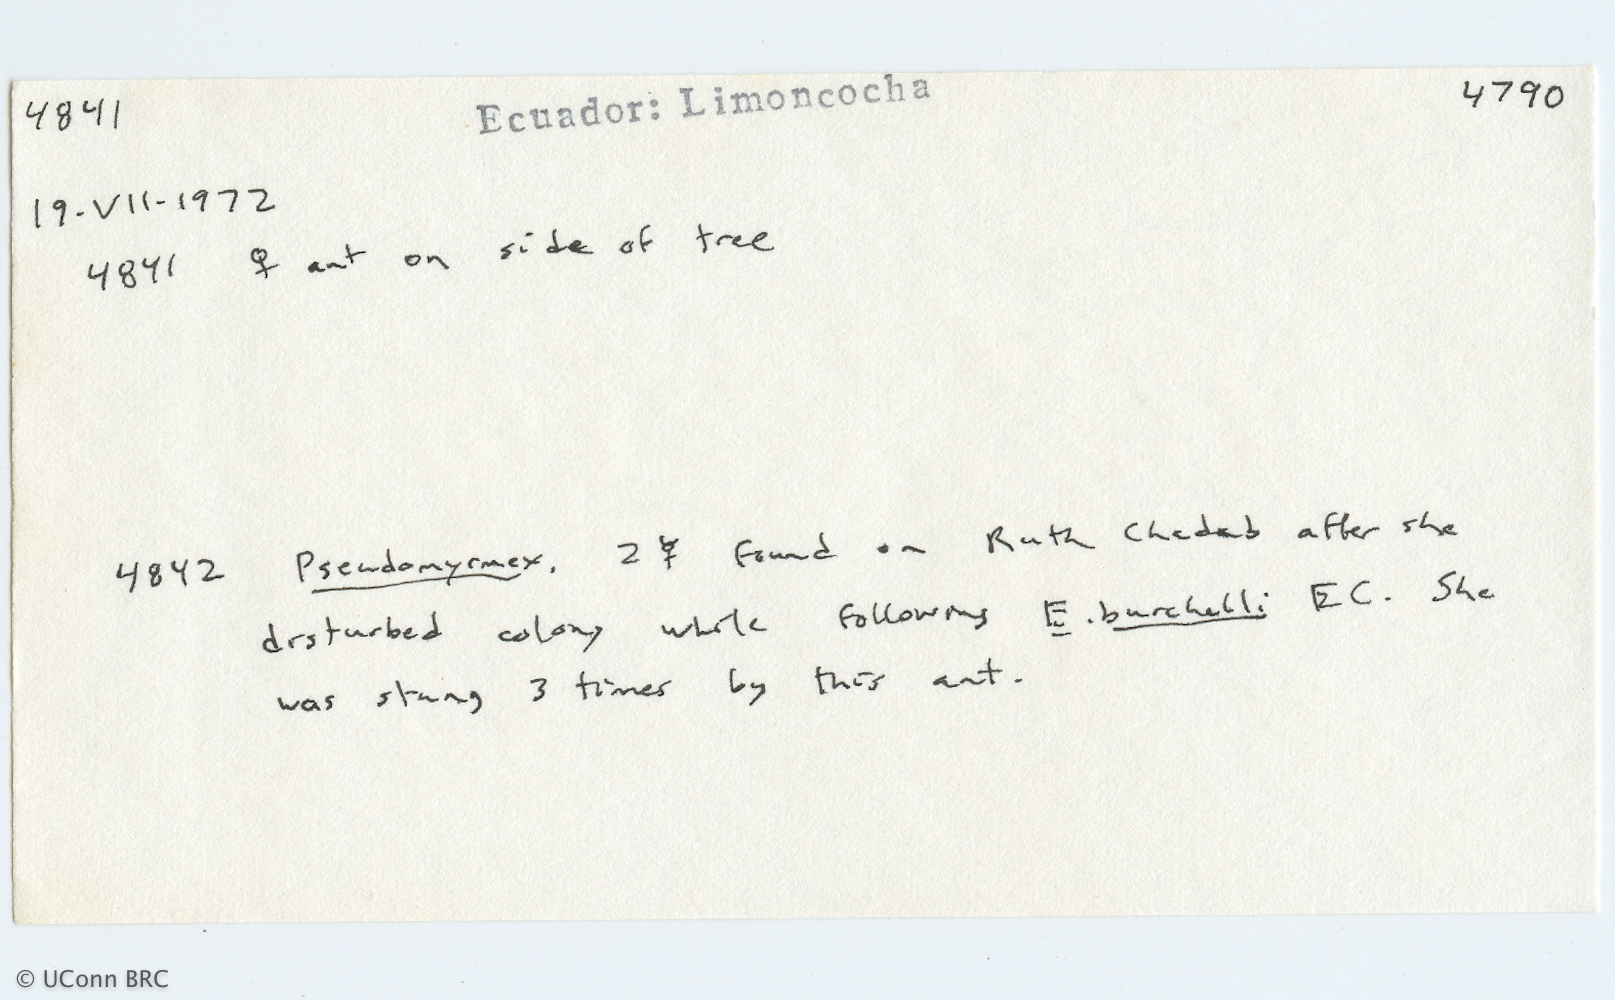 4841 Ecuador: Limoncocha 4790
19-VII-1972
4841 ♀ ant on side of tree
4842 Pseudomyrmex. 2 ☿ found on Ruth Chadab after she
disturbed colony while following E. burchelli EC. She
was stung 3 times by this ant.
© UConn BRC